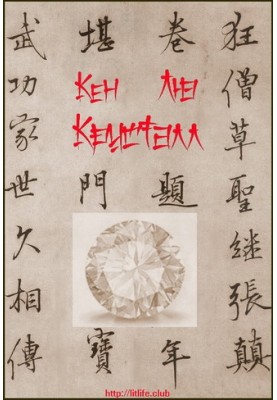 狂僧草聖繼張顛
卷題年
堪門寶
武功家世久相傳
Кен
http://litlife.club